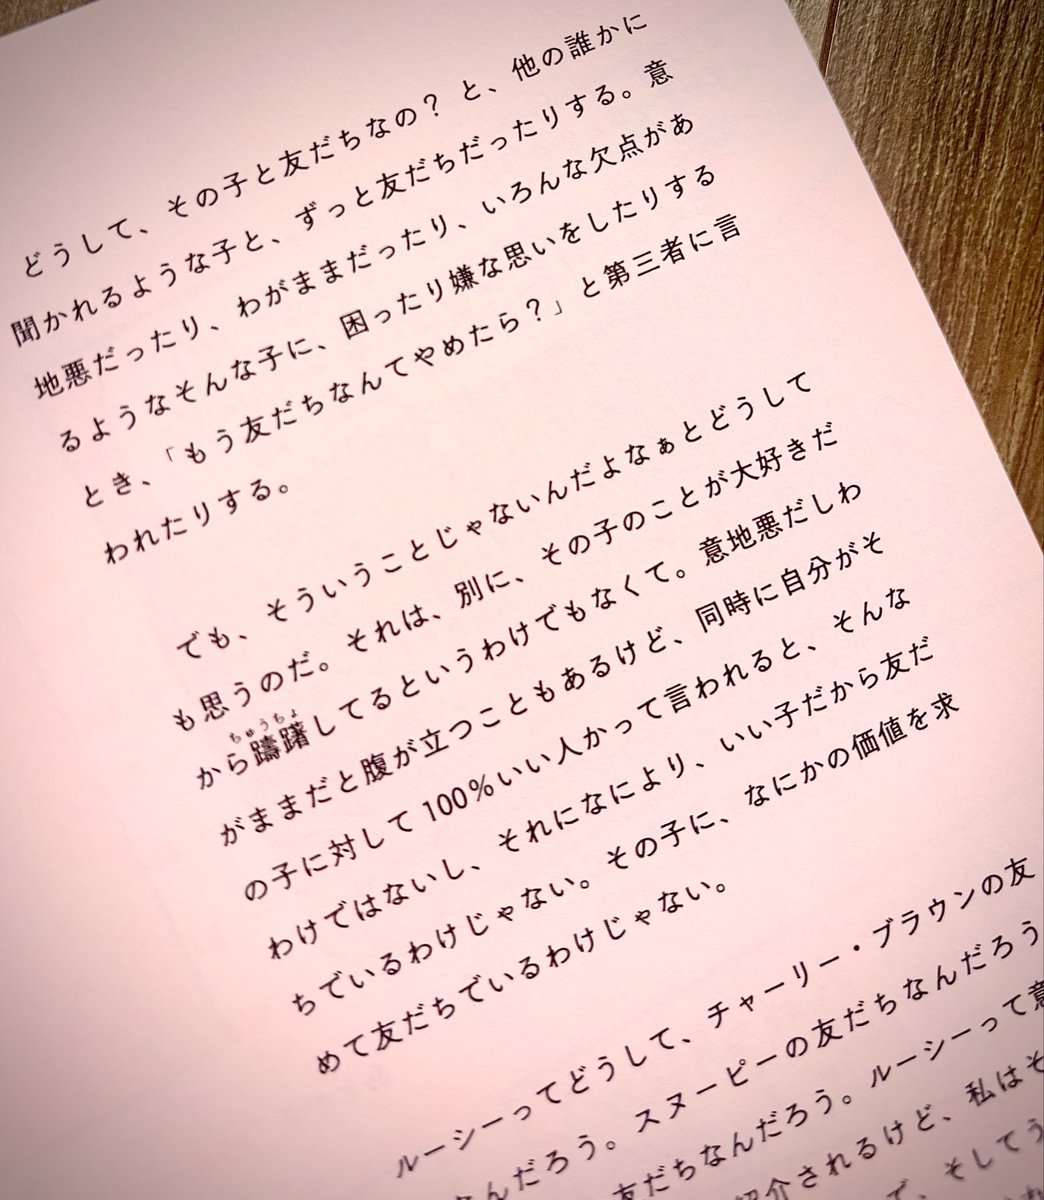 どうして、その子と友だちなの？ と、他の誰かに
聞かれるような子と、ずっと友だちだったりする。意
地悪だったり、わがままだったり、いろんな欠点があ
るようなそんな子に、困ったり嫌な思いをしたりする
とき、「もう友だちなんてやめたら？」と第三者に言
われたりする。
でも、そういうことじゃないんだよなぁとどうして
も思うのだ。それは、別に、その子のことが大好きだ
ちゅうちょ
から躊躇してるというわけでもなくて。意地悪だしわ
がままだと腹が立つこともあるけど、同時に自分がそ
の子に対して100％いい人かって言われると、そんな
わけではないし、それになにより、いい子だから友だ
ちでいるわけじゃない。その子に、なにかの価値を求
めて友だちでいるわけじゃない。
ルーシーってどうして、チャーリー・ブラウンの友
なんだろう。スヌーピーの友だちなんだろう
友だちなんだろう。ルーシーって意
紹介されるけど、私はそ
で、そしてう